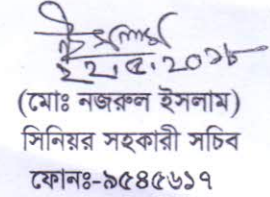 ২২.৫.২০১৮
(মোঃ নজরুল ইসলাম)
সিনিয়র সহকারী সচিব
ফোনঃ-৯৫৪৫৬১৭